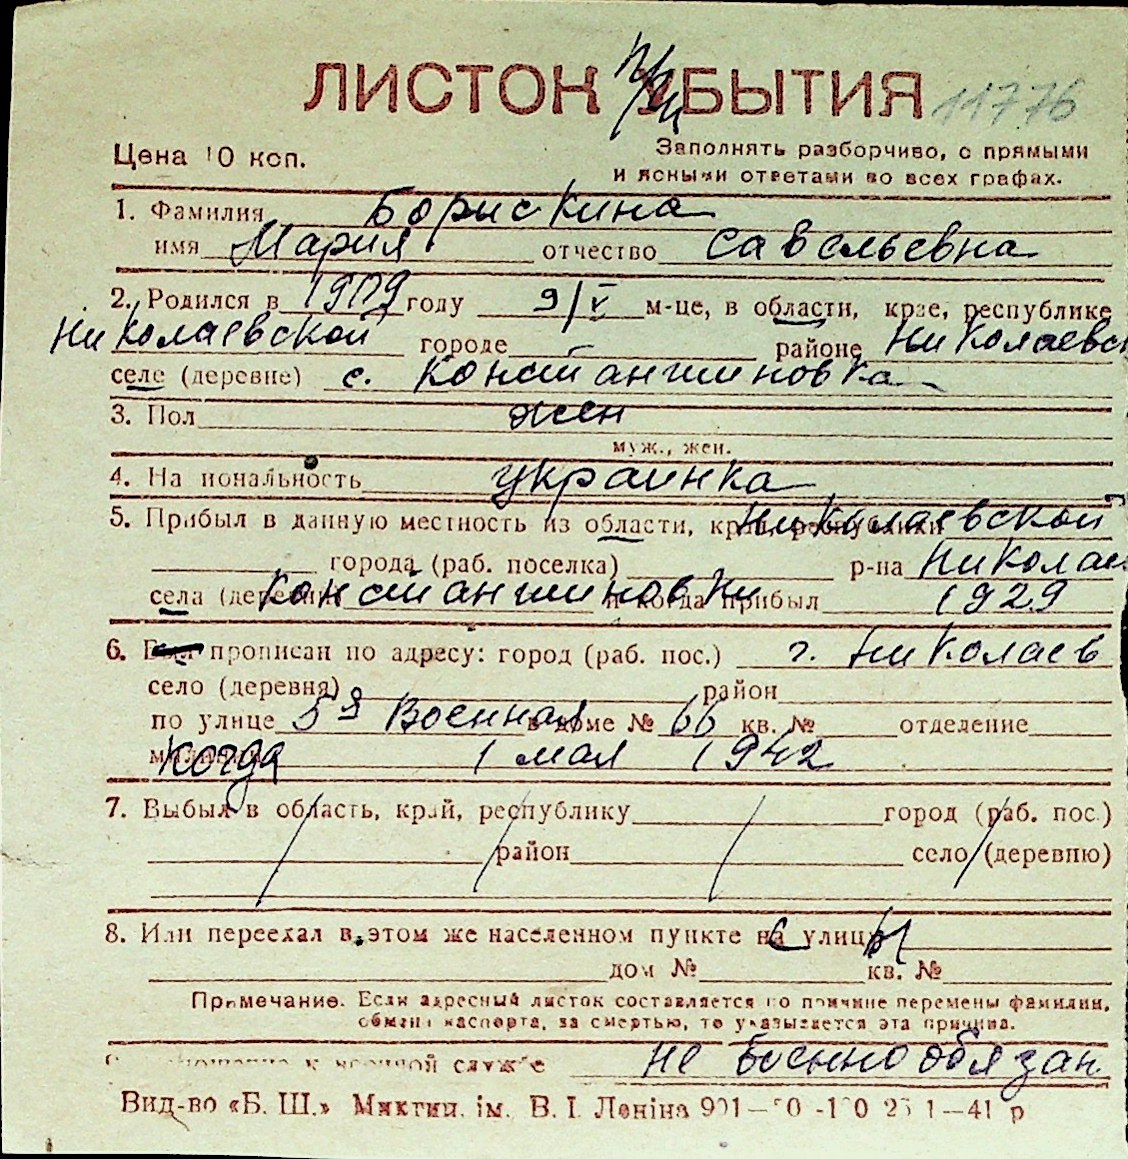 ЛИСТОК УБЫТИЯ 11776
Цена 10 коп. Заполнять разборчиво, с прямыми
и ясными ответами во всех графах.
1. Фамилия Борискина
имя Мария отчество Савельевна
2. Родился в 1909 году 9/V м-це, в области, крае, республике
Николаевской городе — районе Николаевск
селе (деревне) с. Константиновка
3. Пол жен
муж., жен.
4. Национальность украинка
5. Прибыл в данную местность из области, края, республики Николаевской
города (раб. поселка) р-на Николаев
села (деревни) Константиновки и когда прибыл 1929
6. Был прописан по адресу: город (раб. пос.) г. Николаев
село (деревня) район
по улице 5я Военная в доме № 66 кв. № отделение
милиции когда 1 мая 1942
7. Выбыл в область, край, республику город (раб. пос.)
район село (деревню)
8. Или переехал в этом же населенном пункте на улицу
дом № кв. №
Примечание. Если адресный листок составляется по причине перемены фамилии,
обмена паспорта, за смертью, то указывается эта причина.
к военной службе не военнообязан
Вид-во «Б. Ш.» Микгип. ім. В. І. Леніна